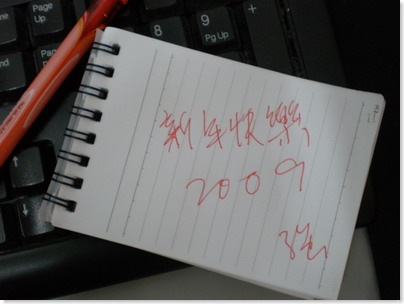 新年快樂
2009
Page Up
8
9
Pg Up
6
+